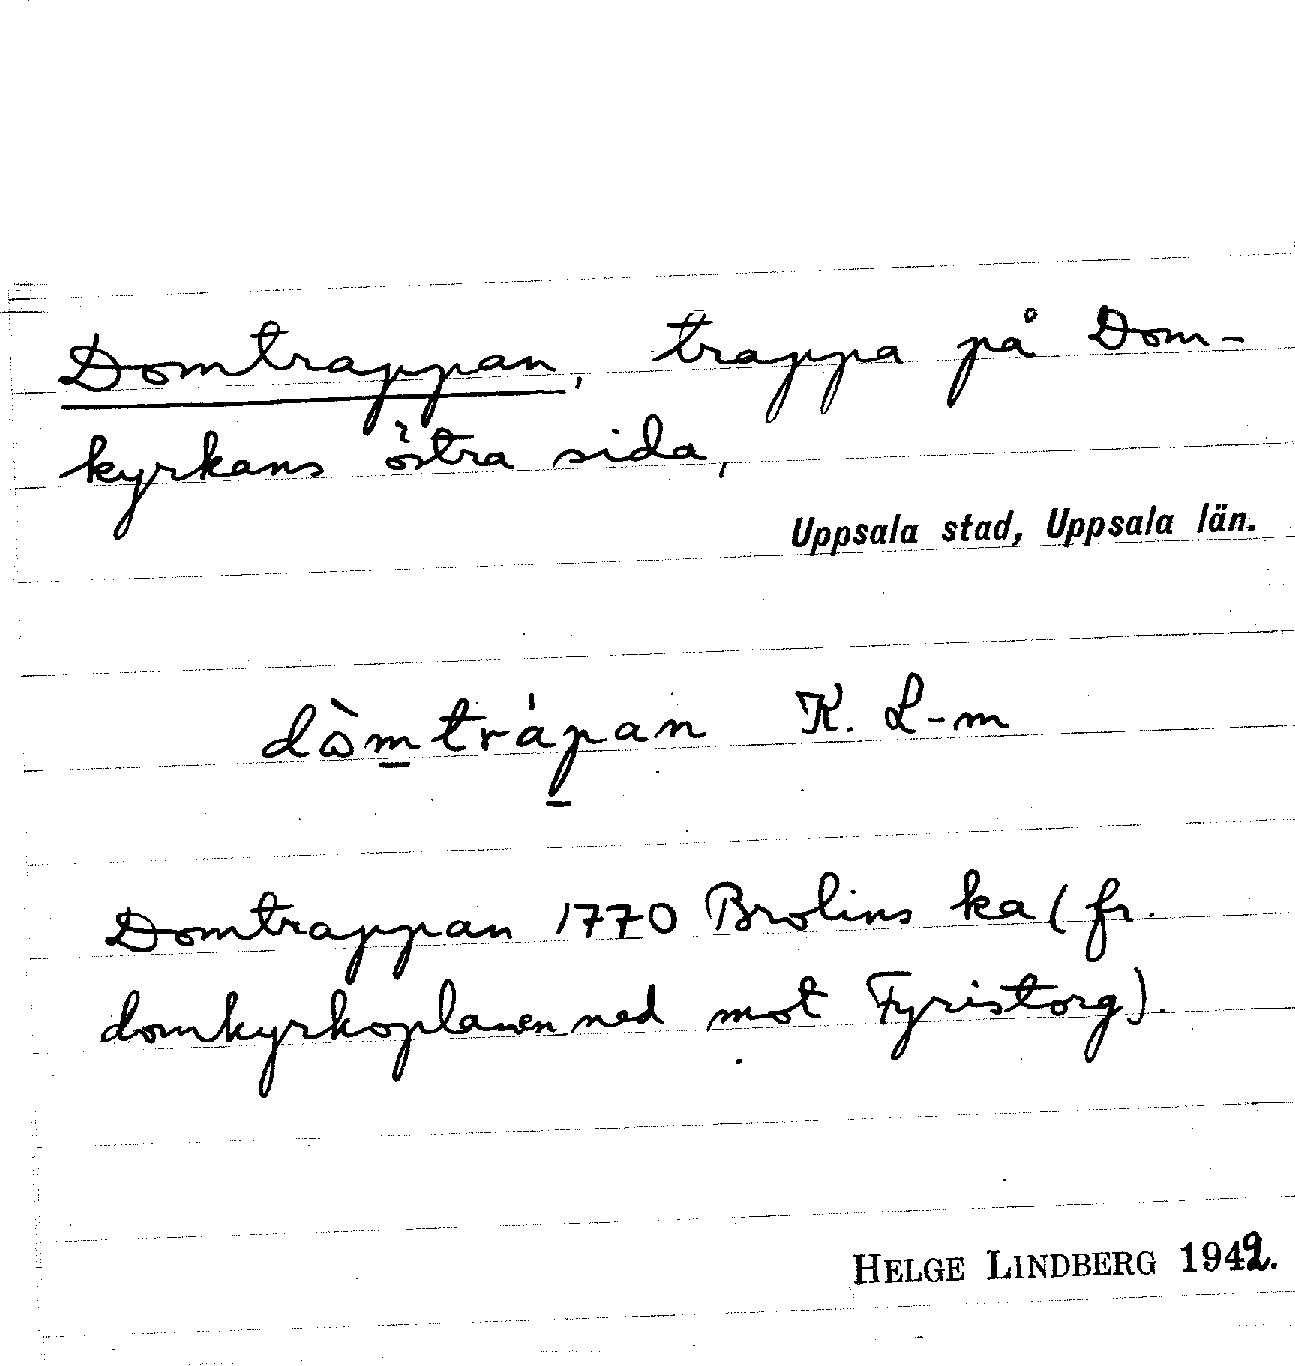 Domtrappan, trappa på Dom-
kyrkans östra sida,
Uppsala stad, Uppsala län.
dὼm̲trápֿan K. L-m
Domtrappan 1770 Brolins ka (fr.
domkyrkoplanen ned mot Fyristorg).
HELGE LINDBERG 1942.